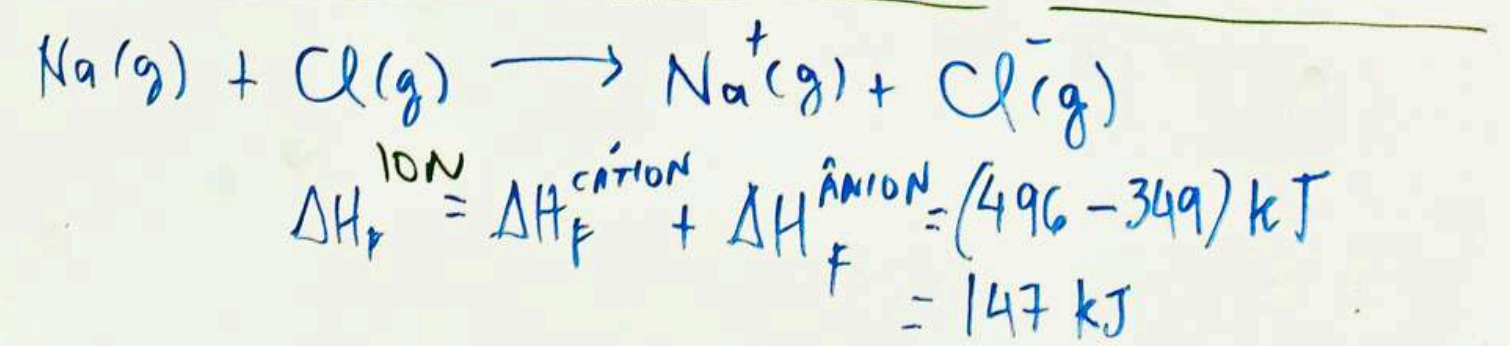 Na(g) + Cl(g) ⟶ Na⁺(g) + Cl⁻(g)
ΔH_F^ION = ΔH_F^CÁTION + ΔH_F^ÂNION = (496 - 349) kJ
= 147 kJ